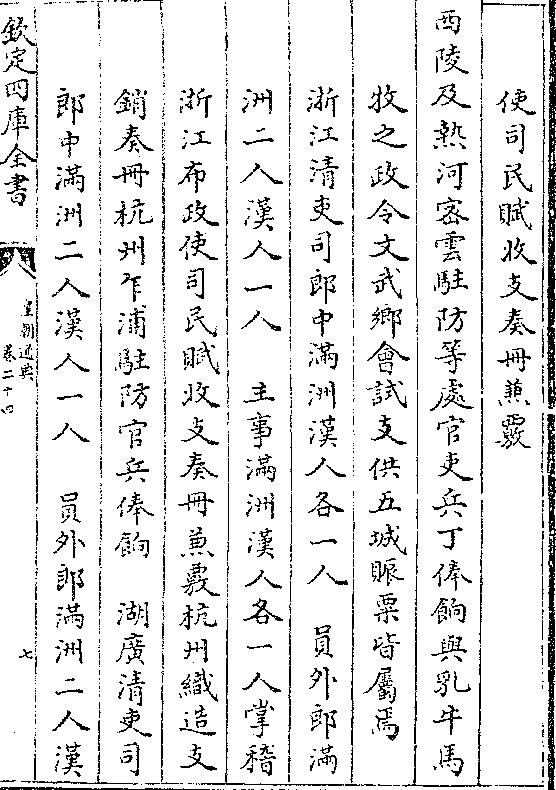 使司民賦收支奏冊兼覈
西陵及熱河密雲駐防等處官吏兵丁俸餉與乳牛馬
牧之政令文武鄉會試支供五城賑粟皆屬焉
浙江清吏司郎中滿洲漢人各一人　員外郎滿
洲二人漢人一人　主事滿洲漢人各一人掌稽
浙江布政使司民賦收支奏冊兼覈杭州織造支
銷奏冊杭州乍浦駐防官兵俸餉　湖廣清吏司
郎中滿洲二人漢人一人　員外郎滿洲二人漢
欽定四庫全書
皇朝通典
卷二十四
七